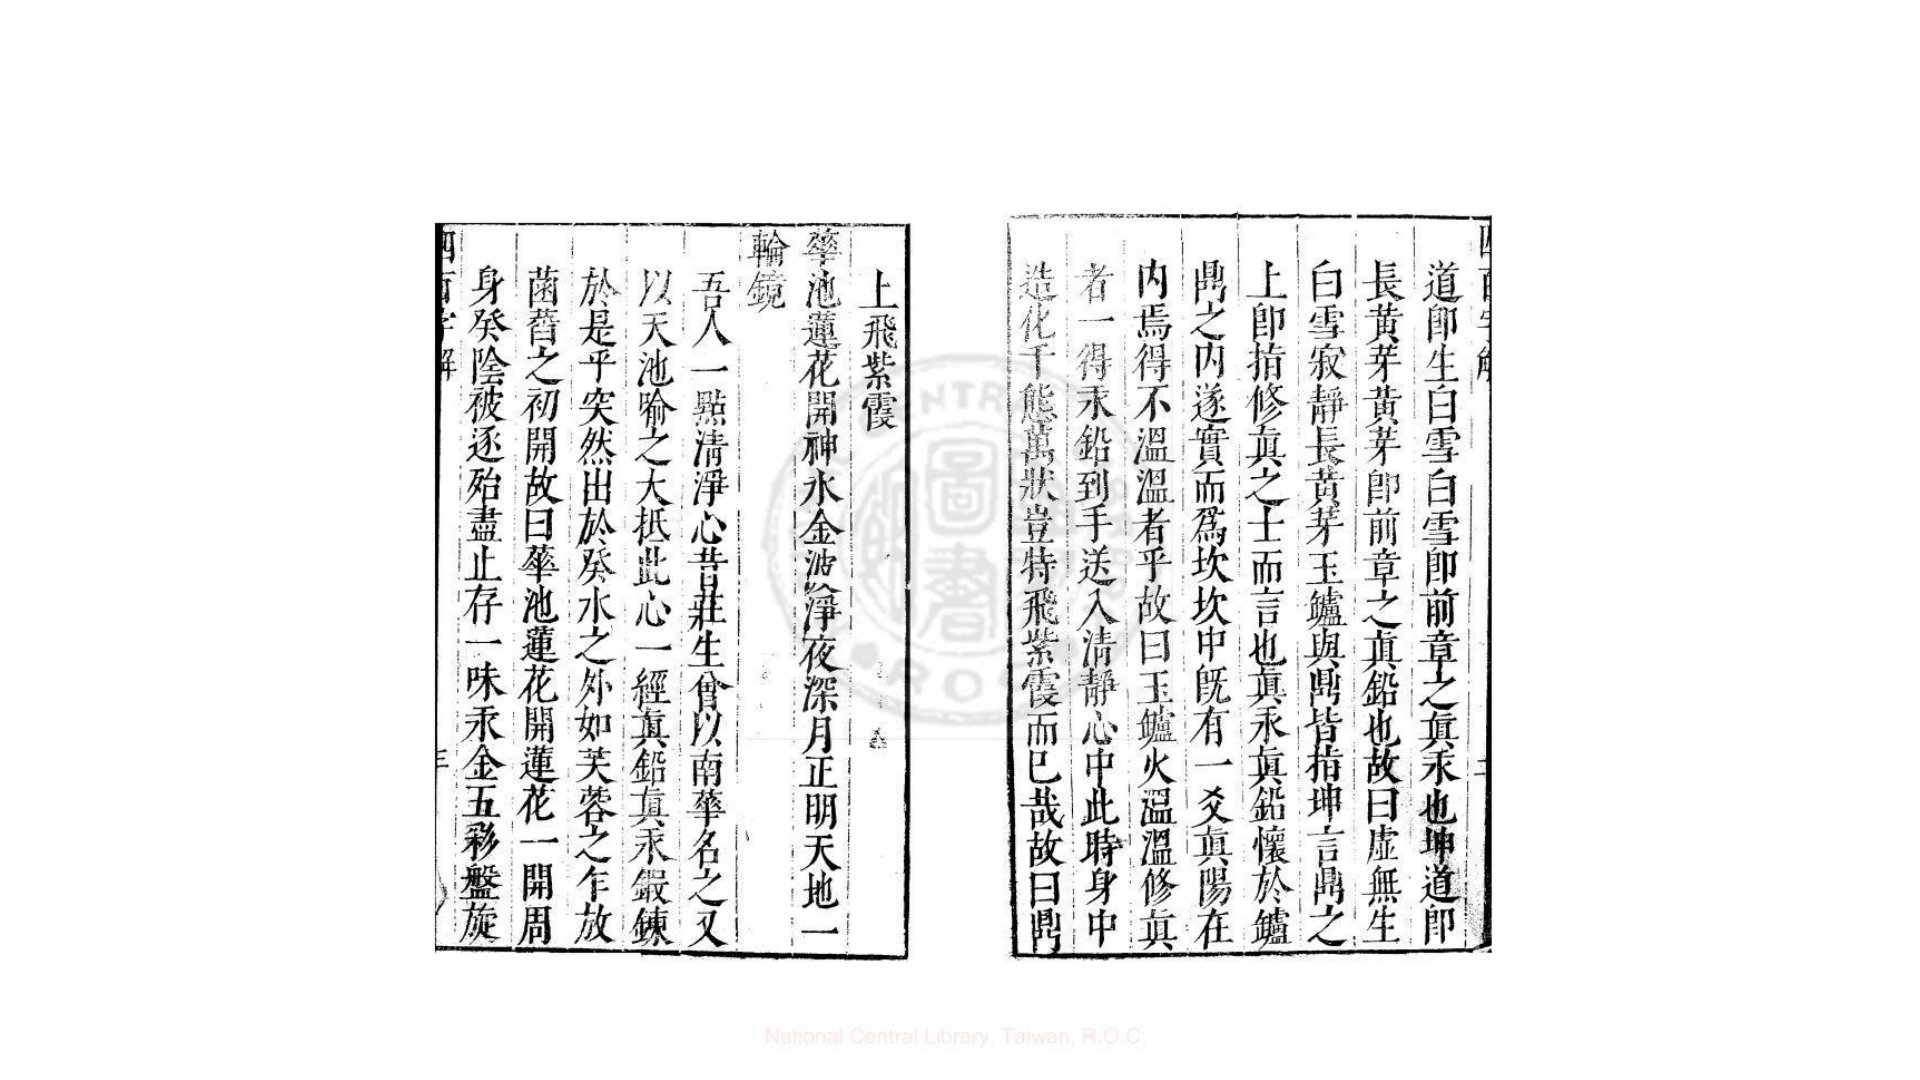 道卽生白雪白雪卽前章之眞汞也坤道卽
長黃芽黃芽卽前章之眞鉛也故曰虛無生
白雪寂靜長黃芽玉鑪與鼎皆指坤言鼎之
上卽指修眞之士而言也眞汞眞鉛懷於鑪
鼎之内遂實而爲坎坎中旣有一爻眞陽在
内焉得不溫溫者乎故曰玉鑪火溫溫修眞
者一得汞鉛到手送入清靜心中此時身中
造化千態萬狀豈特飛紫霞而已哉故曰鼎
上飛紫霞
華池蓮花開神水金波淨夜深月正明天地一
輪鏡
吾人一點清淨心昔莊生曾以南華名之又
以天池喻之大抵此心一經眞鉛眞汞鍜鍊
於是乎突然出於癸水之外如芙蓉之乍放
菡萏之初開故曰華池蓮花開蓮花一開周
身癸陰被逐殆盡止存一味汞金五彩盤旋
四百字解
National Central Library, Taiwan, R.O.C.